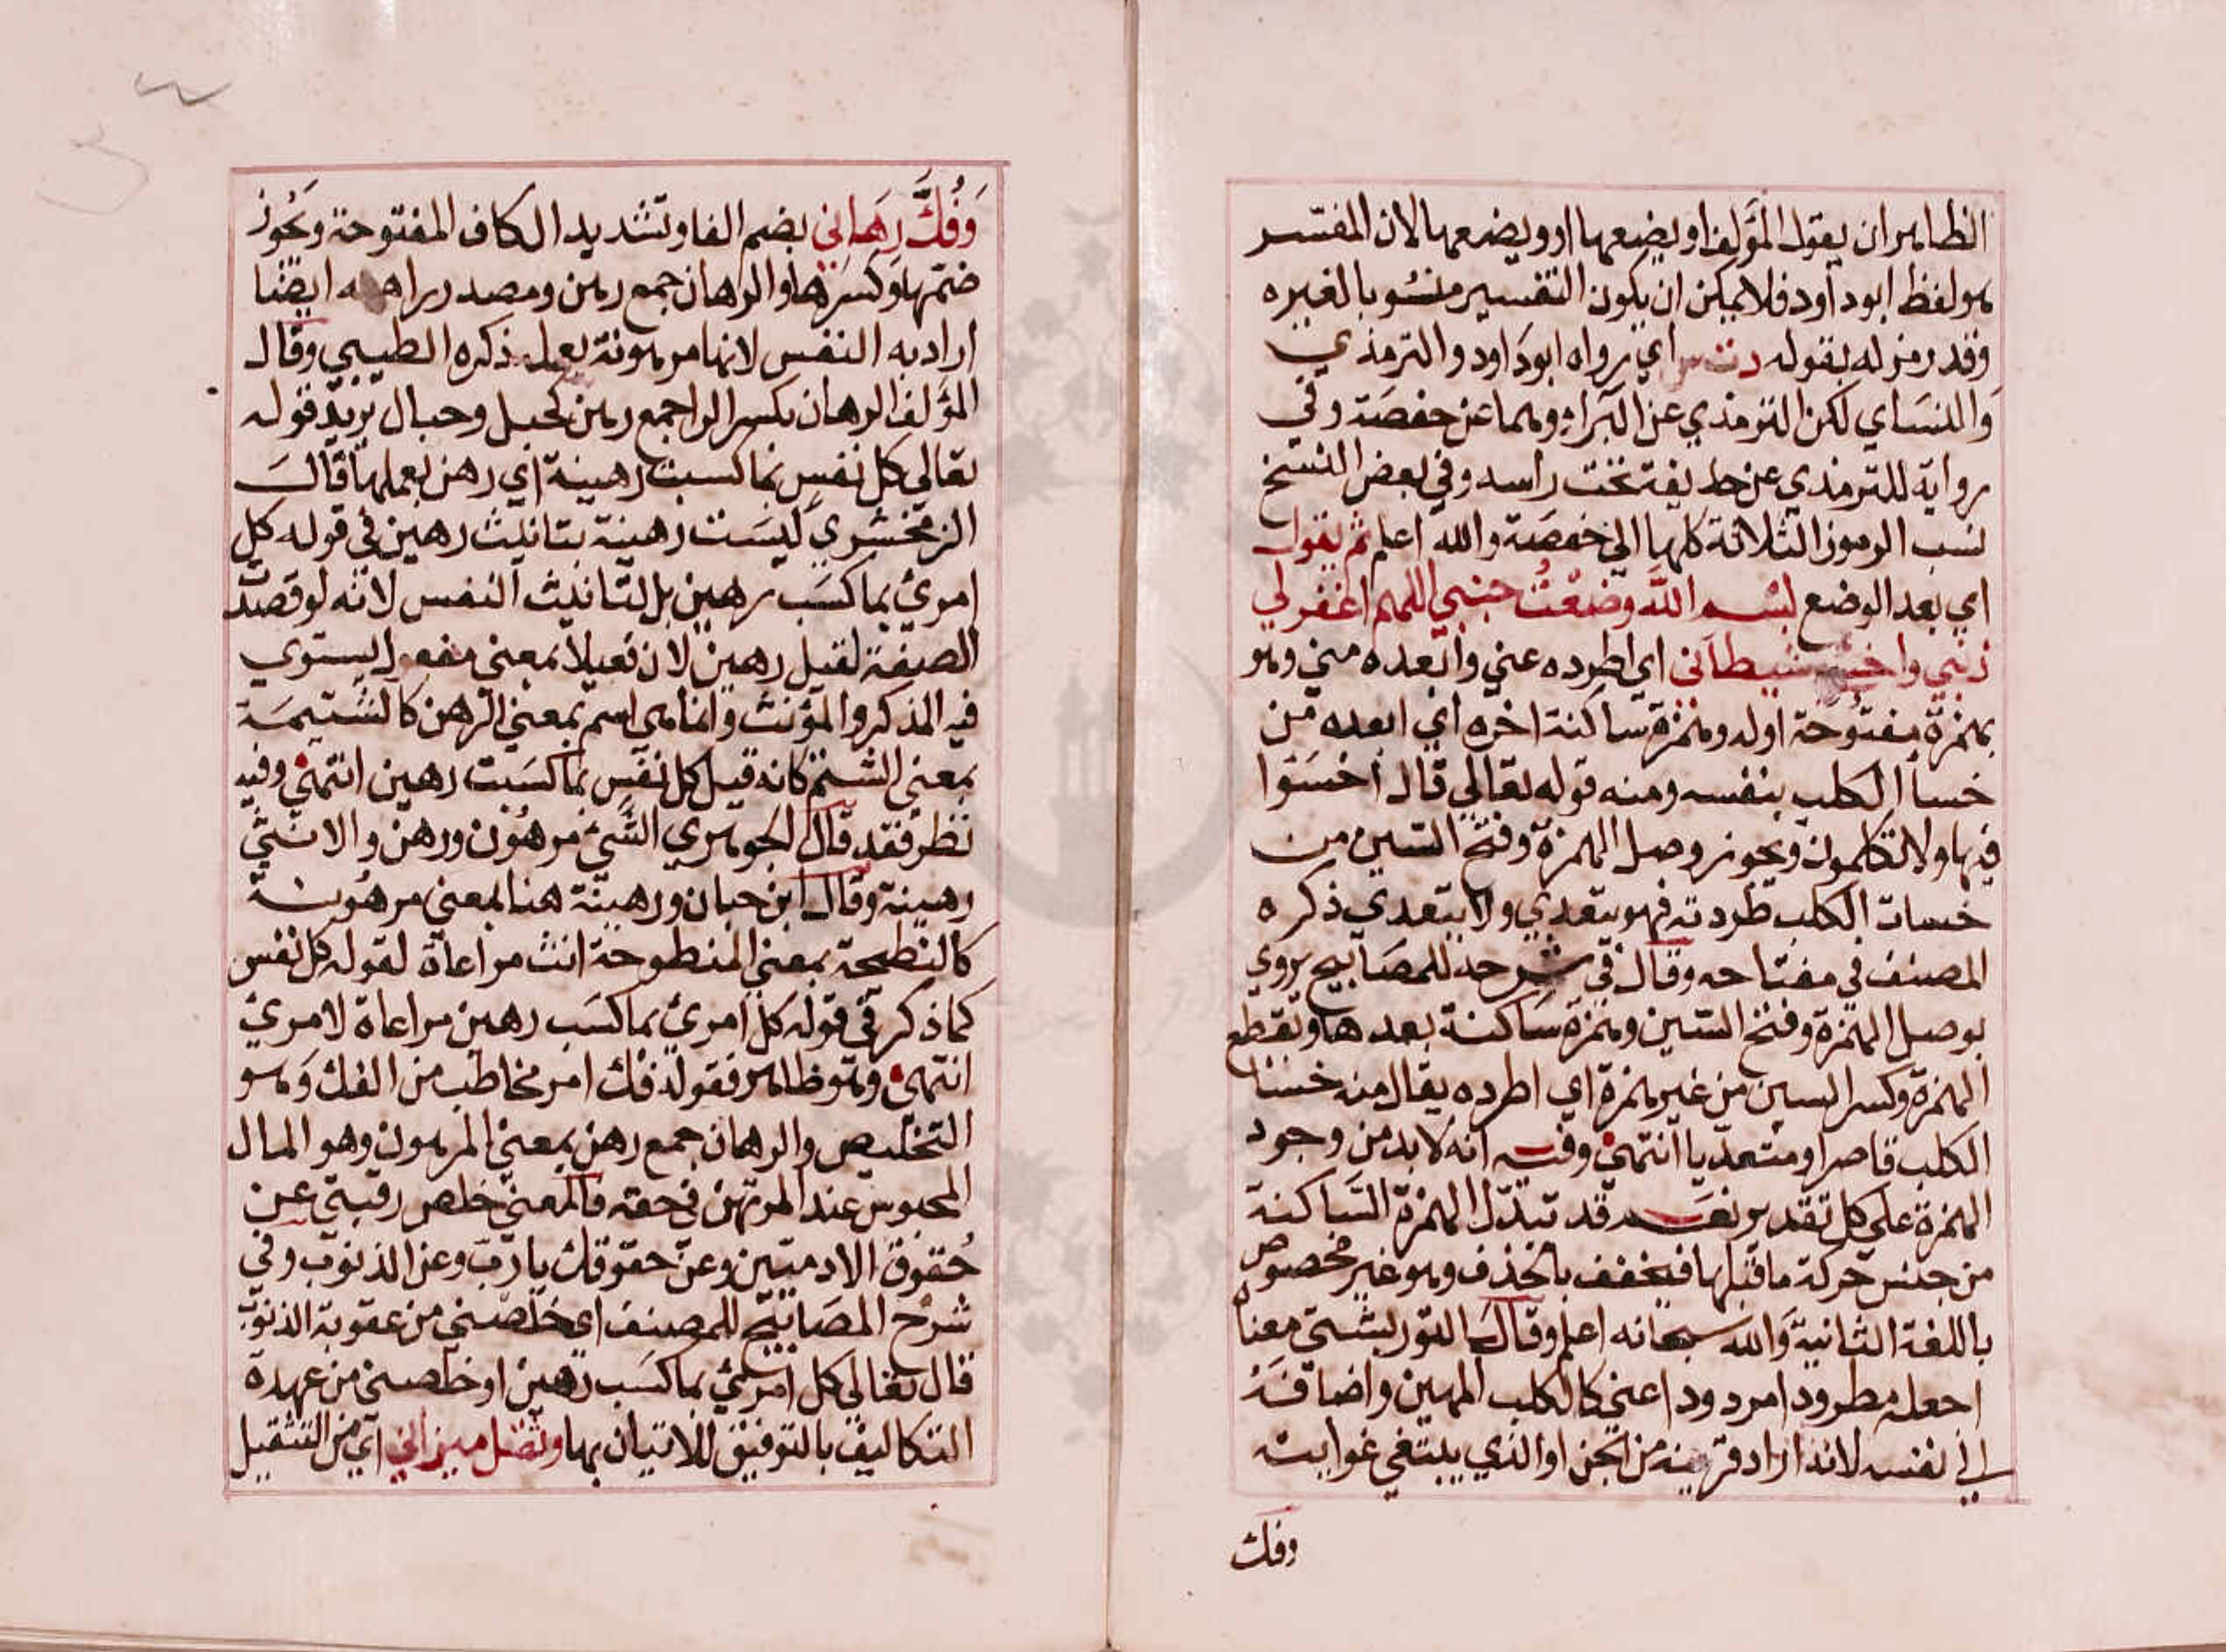 الظاهر ان يقول المؤلف او يضعهما او ويضعهما لان المفسر
هو لفظ ابو داود فلا يمكن ان يكون التفسير منسوبا لغيره
وقد رمز له بقوله دت س اي رواه ابو داود والترمذي
والنساي لكن الترمذي عن البراء وهما عن حفصة وفي
رواية للترمذي عن حذيفة تحت راسه وفي بعض النسخ
نسب الرموز الثلاثة كلها الى حفصة والله اعلم ثم يقول
اي بعد الوضع بسم الله وضعت جنبي اللهم اغفر لي
ذنبي واخسئ شيطاني اي اطرده عني وابعده مني وهو
بهمزة مفتوحة اوله وهمزة ساكنة اخره اي ابعده من
خسأ الكلب بنفسه ومنه قوله تعالى قال اخسئوا
فيها ولا تكلمون ويجوز وصل الهمزة وفتح السين من
خسات الكلب طردته فهو يتعدي ولا يتعدي ذكره
المصنف في مفتاحه وقال في شرحه للمصابيح يروي
بوصل الهمزة وفتح السين وهمزة ساكنة بعدها وبقطع
الهمزة وكسر السين من غير همزة اي اطرده يقال منه خسئا
الكلب قاصرا ومتعديا انتهى وفيه انه لا بد من وجود
الهمزة على كل تقدير نعم قد تبدل الهمزة الساكنة
من جنس حركة ما قبلها فيخفف بالحذف وهو غير مخصوص
باللغة الثانية والله سبحانه اعلم وقال التوربشتي معناه
اجعله مطرودا مردودا عني كالكلب المهين واضافته
الى نفسه لانه اراد قرينه من الجن او الذي يبتغي غوايته
وفك
وَفُكَّ رِهَاني بضم الفا وتشديد الكاف المفتوحة ويجوز
ضمها وكسرها والرهان جمع رهن ومصدر راهنه ايضا
اراد به النفس لانها مرهونة بعمله ذكره الطيبي وقال
المؤلف الرهان بكسر الرا جمع رهن كحبل وحبال يريد قوله
تعالى كل نفس بما كسبت رهينة اي رهن بعملها قال
الزمخشري ليست رهينة بتانيث رهين في قوله كل
امرئ بما كسب رهين بل لتانيث النفس لانه لو قصدت
الصفة لقيل رهين لان فعيلا بمعنى مفعول يستوي
فيه المذكر والمؤنث وانما هي اسم بمعنى الرهن كالشتيمة
بمعنى الشتم كانه قيل كل نفس بما كسبت رهين انتهى وفيه
نظر فقد قال الجوهري الشئ مرهون ورهن والانثى
رهينة وقال ابن حبان ورهينة هنا بمعنى مرهونة
كالنطيحة بمعنى المنطوحة انث مراعاة لقوله كل نفس
كما ذكر في قوله كل امرئ بما كسب رهين مراعاة لامرئ
انتهى وهو ظاهر فقوله فك امر مخاطب من الفك وهو
التخليص والرهان جمع رهن بمعنى المرهون وهو المال
المحبوس عند المرتهن في حقه فالمعنى خلص رقبتي عن
حقوق الادميين وعن حقوقك يا رب وعن الذنوب وفي
شرح المصابيح للمصنف اي خلصني من عقوبة الذنوب
قال تعالى كل امرئ بما كسب رهين او خلصني من عهدة
التكاليف بالتوفيق للاتيان بها وثقل ميزاني اي من التثقيل